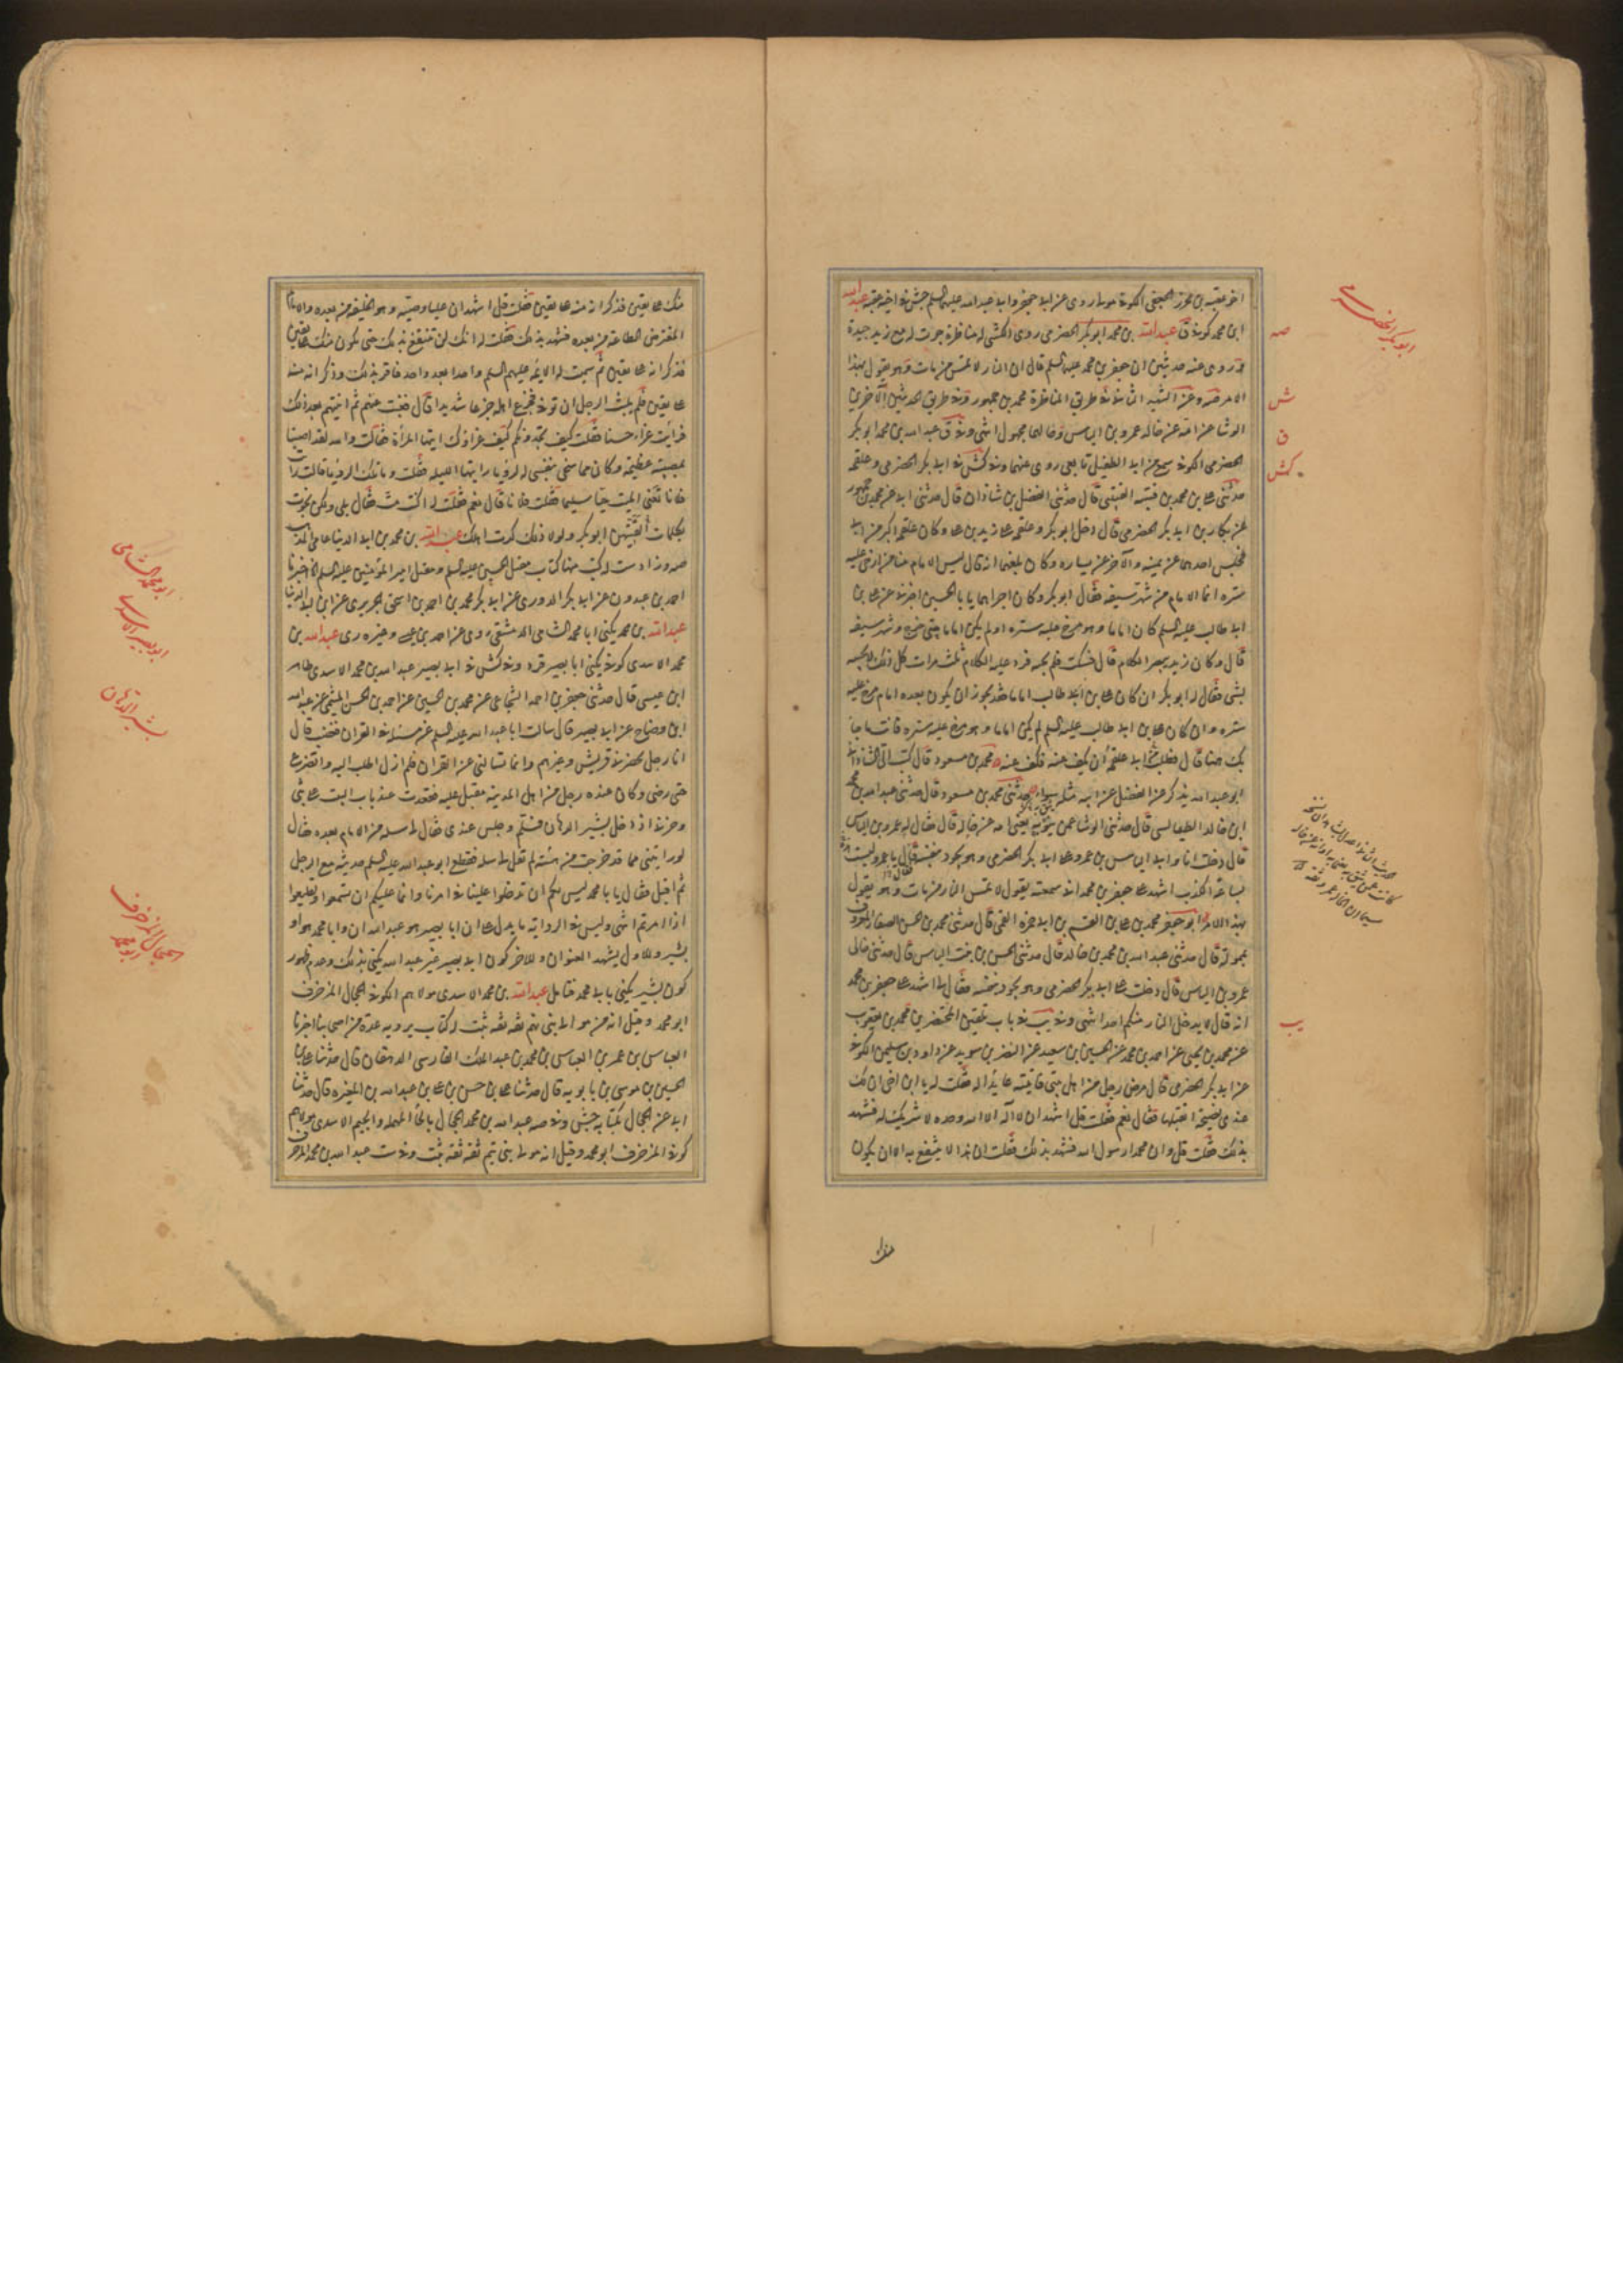 اخو عقبة بن محرز الجعفي الكوفي مولى روى عن ابي جعفر وابي عبد الله عليهما السلم جش في اخيه عقبه عبد الله
ابن محمد كوفي ق عبد الله بن محمد ابو بكر الحضرمي روى الكشي له مناظرة جرت له مع زيد جيدة
وروى عنه حديثين ان جعفر بن محمد عليهما السلم قال ان النار لا تمس من مات وهو يقول بهذا
الامر صه وعن الشهيد الثاني في طريق المناظرة محمد بن جمهور وفي طريق الحديثين الآخرين
الوشا عن امه عن خاله عمرو بن الياس وحالهما مجهول انتهى وفي ق عبد الله بن محمد ابو بكر
الحضرمي الكوفي سمع من ابي الطفيل تابعي روى عنهما وفي كش في ابي بكر الحضرمي وعلقمه
حدثني علي بن محمد بن قتيبه القتيبي قال حدثني الفضل بن شاذان قال حدثني ابي عن محمد بن جمهور
عن بكار بن ابي بكر الحضرمي قال دخل ابو بكر وعلقمه على زيد بن علي وكان علقمه اكبر من ابي
فجلس احدهما عن يمينه والآخر عن يساره وكان بلغهما انه قال ليس الامام منا من ارخى عليه
ستره انما الامام من شهر سيفه فقال ابو بكر وكان اجراهما يا ابا الحسين اخبرني عن علي بن
ابي طالب عليه السلم كان اماما وهو مرخ عليه ستره او لم يكن اماما حتى خرج وشهر سيفه
قال وكان زيد يبصر الكلام قال فسكت فلم يجبه فرد عليه الكلام ثلث مرات كل ذلك لا يجيبه
بشي فقال له ابو بكر ان كان علي بن ابي طالب اماما فقد يجوز ان يكون بعده امام مرخ عليه
ستره وان كان علي بن ابي طالب عليه السلم لم يكن اماما وهو مرخ عليه ستره فانت ما جا
بك ههنا قال فطلب الى ابي علقمه ان يكف عنه فكف عنه محمد بن مسعود قال كتب الي الشاذاني
ابو عبد الله يذكر عن الفضل عن ابيه مثله سواء حدثني محمد بن مسعود قال حدثني عبد الله بن محمد
ابن خالد الطيالسي قال حدثني الوشا عمن يثق به يعني امه عن خاله قال فقال له عمرو بن الياس
قال دخلت انا وابي الياس بن عمرو على ابي بكر الحضرمي وهو يجود بنفسه قال يا عمرو ليست
بساعة الكذب اشهد على جعفر بن محمد اني سمعته يقول لا تمس النار من مات وهو يقول
بهذا الامر ابو جعفر محمد بن علي بن القسم بن ابي حمزه القمي قال حدثني محمد بن الحسن الصفار المعروف
بممولة قال حدثني عبد الله بن محمد بن خالد قال حدثني الحسن بن بنت الياس قال حدثني خالي
عمرو بن الياس قال دخلت على ابي بكر الحضرمي وهو يجود بنفسه فقال لي اشهد على جعفر بن محمد
انه قال لا يدخل النار منكم احد انتهى وفي يب في باب تلقين المحتضرين محمد بن يعقوب
عن محمد بن يحيى عن احمد بن محمد عن الحسين بن سعيد عن النضر بن سويد عن داود بن سليمن الكوفي
عن ابي بكر الحضرمي قال مرض رجل من اهل بيتي فاتيته عايدا له فقلت له يا ابن اخي ان لك
عندي نصيحة اتقبلها فقال نعم فقلت قل اشهد ان لا اله الا الله وحده لا شريك له فشهد
بذلك فقلت قل وان محمدا رسول الله فشهد بذلك فقلت ان هذا لا ينتفع به الا ان يكون
ابو بكر الحضرمي
صه
ش
ق
كش
يب
منك على يقين فذكر انه منه على يقين فقلت قل اشهد ان عليا وصيه وهو الخليفه من بعده والامام
المفترض الطاعة من بعده فشهد بذلك فقلت له انك لن تنتفع بذلك حتى يكون منك على يقين
فذكر انه على يقين ثم سميت له الايمه عليهم السلم واحدا بعد واحد فاقر بذلك وذكر انه منه
على يقين فلم يلبث الرجل ان توفي فجزع اهله جزعا شديدا قال فغبت عنهم ثم اتيتهم بعد ذلك
فرايت عزاء حسنا فقلت كيف تجدونكم كيف عزاؤك ايتها المرأة فقالت والله لقد اصبنا
بمصيبة عظيمة وكان مما سخى بنفسي له لرؤيا رايتها الليلة فقلت وما تلك الرؤيا قالت رايت
فلانا تعني الميت حيا سليما فقلت فلانا قال نعم فقلت له اكنت مت فقال بلى ولكن نجوت
بكلمات لقنيهن ابو بكر ولولا ذلك كدت اهلك عبد الله بن محمد بن ابي الدنيا عامي المذهب
صه وزاد ست له كتب منها كتاب مقتل الحسين عليه السلم ومقتل امير المؤمنين عليه السلم اخبرنا
احمد بن عبدون عن ابي بكر الدوري عن ابي بكر محمد بن احمد بن اسحق الحريري عن ابن ابي الدنيا
عبد الله بن محمد يكنى ابا محمد الشامي الدمشقي روى عن احمد بن محمد بن عيسى وغيره ري عبد الله بن
محمد الاسدي كوفي يكنى ابا بصير قر وفي كش في ابي بصير عبد الله بن محمد الاسدي طاهر
ابن عيسى قال حدثني جعفر بن احمد الشجاعي عن محمد بن الحسين عن احمد بن الحسن الميثمي عن عبد الله
ابن وضاح عن ابي بصير قال سالت ابا عبد الله عليه السلم عن مسئلة في القران فغضب قال
انا رجل يحضرني قريش وغيرهم وانما تسالني عن القران فلم ازل اطلب اليه واتضرع
حتى رضي وكان عنده رجل من اهل المدينة مقبل عليه فقعدت عند باب البيت على بثي
وحزني اذ دخل بشير الدهان فسلم وجلس عندي فقال لي سله من الامام بعده فقال
لو رايتني مما قد خرجت من هيئته لم تقل لي سله فقطع ابو عبد الله عليه السلم حديثه مع الرجل
ثم اقبل فقال يا با محمد ليس لكم ان تدخلوا علينا في امرنا وانما عليكم ان تسمعوا وتطيعوا
اذا امرتم انتهى وليس في الرواية ما يدل على ان ابا بصير هو عبد الله ان وابا محمد هو او
بشير وللاول يشهد العنوان وللاخر كون ابي بصير غير عبد الله يكنى بذلك وعدم ظهور
كون بشير يكنى بابي محمد فتامل عبد الله بن محمد الاسدي مولاهم الكوفي الحجال المزخرف
ابو محمد وقيل انه من موالي بني تيم ثقه ثقه ثبت له كتاب يرويه عدة من اصحابنا اخبرنا
العباس بن عمر بن العباس بن محمد بن عبد الملك الفارسي الدهقان قال حدثنا علي بن
الحسين بن موسى بن بابويه قال حدثنا علي بن حسن بن علي بن عبد الله بن المغيره قال حدثنا
ابي عن الحجال بكتابه جش وفي صه عبد الله بن محمد الحجال بالحاء المهمله والجيم الاسدي مولاهم
كوفي المزخرف ابو محمد وقيل انه مولى بني تيم ثقه ثقه ثبت وفي ست عبد الله بن محمد المزخرف
ابو محمد الشامي
ابو بصير الاسدي
بشير الدهان
الحجال المزخرف
ابو محمد